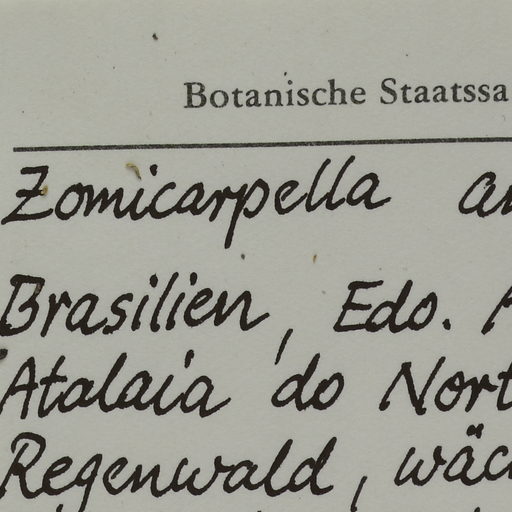 Botanische Staatssa
Zomicarpella
Brasilien, Edo.
Atalaia do Nort
Regenwald, wäc